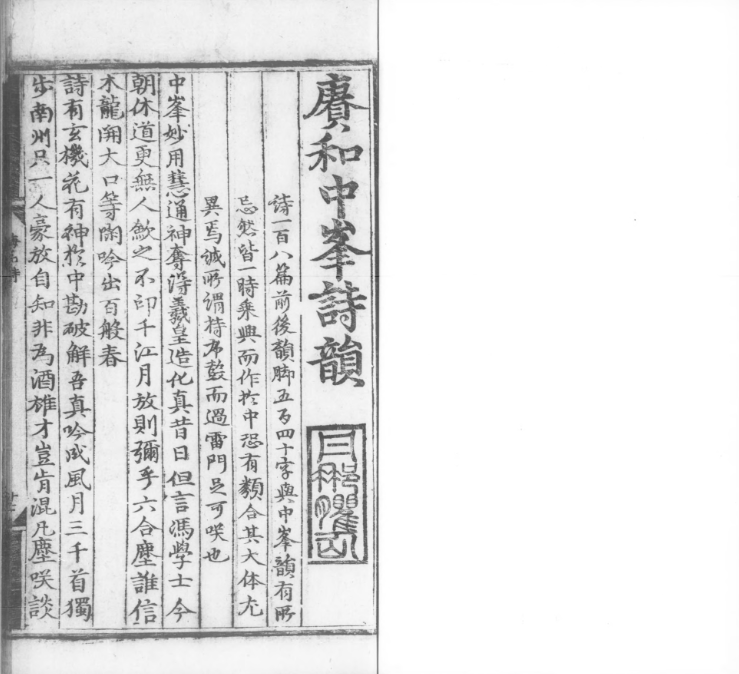 賡和中峯詩韻
詩一百八篇前後韻脚五百四十字與中峯韻有所
忌然皆一時乘興而作於中恐有類合其大体尤
異焉誠所謂持布鼓而過雷門足可咲也
中峯妙用慧通神奪得羲皇造化真昔日但言馮學士今
朝休道更無人歛之不印千江月放則彌乎六合塵誰信
木龍開大口等閑吟出百般春
詩有玄機花有神於中勘破解吾真吟成風月三千首獨
步南州只一人豪放自知非為酒雄才豈肯混凡塵咲談